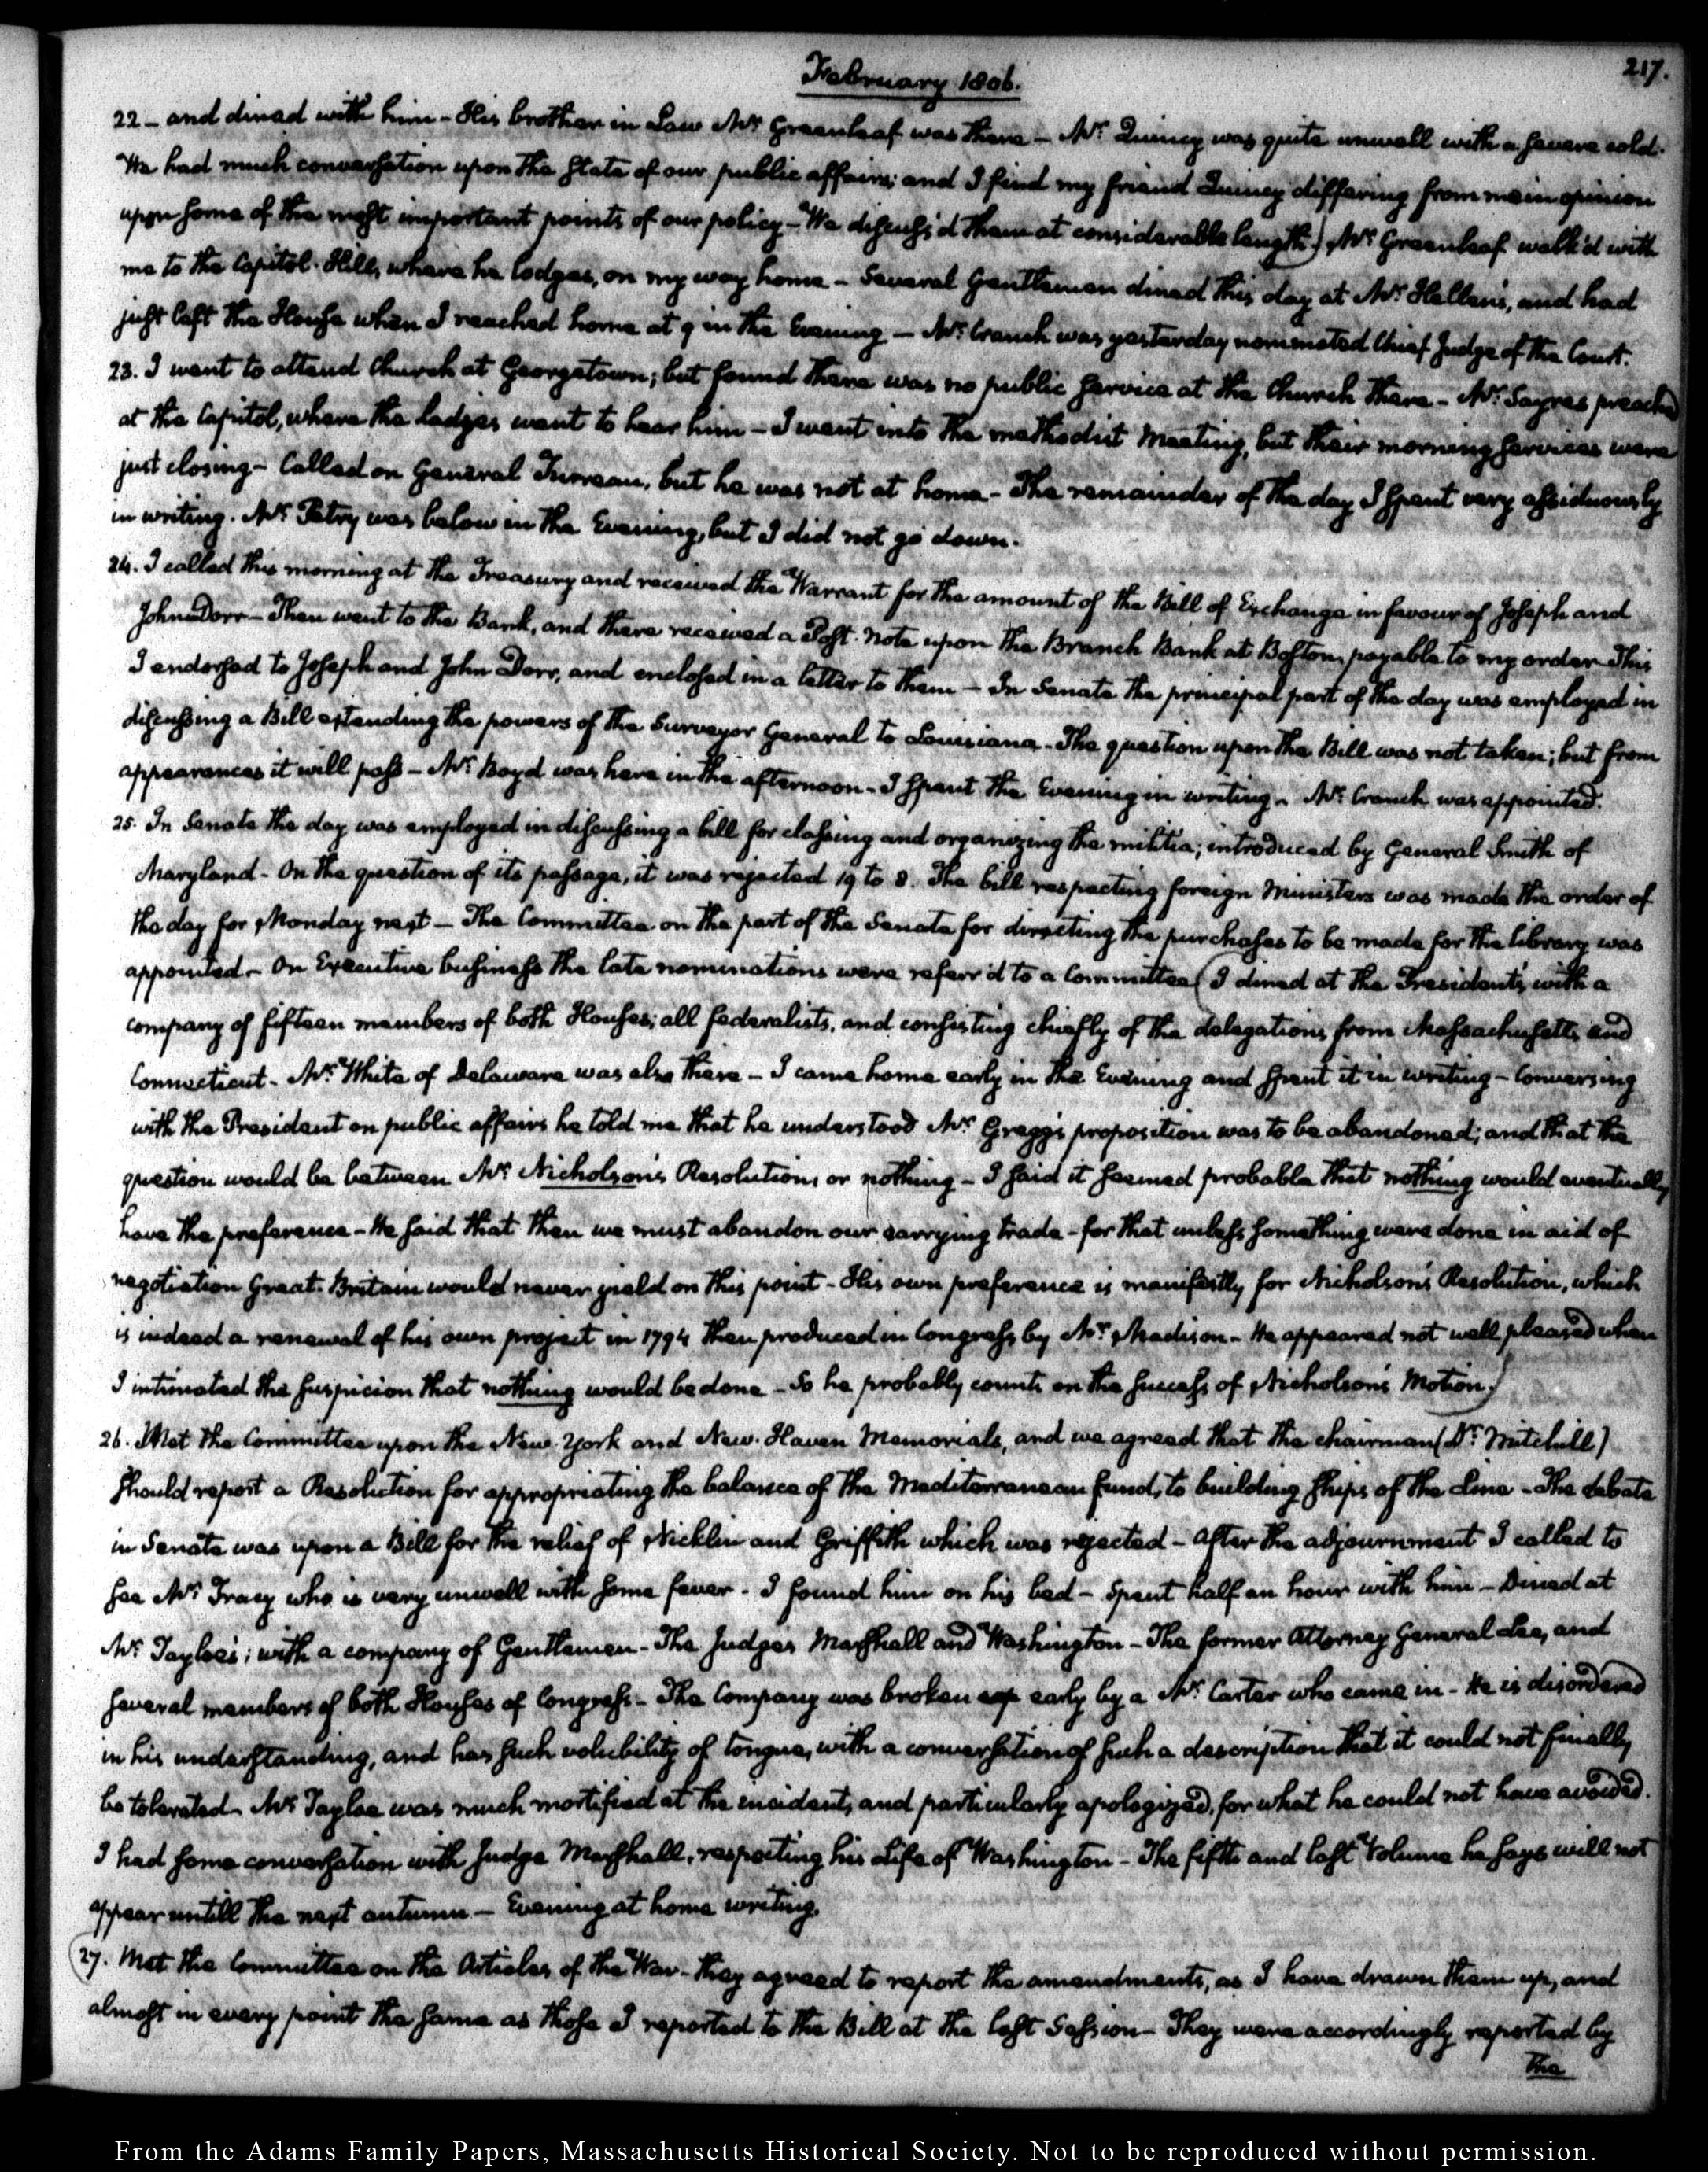 217.
February 1806.
22 - and dined with him - His brother in Law Mr Greenleaf was there - Mr Quincy was quite unwell with a severe cold.
We had much conversation upon the state of our public affairs; and I find my friend Quincy differing from me in opinion
upon some of the most important points of our policy - We discuss'd them at considerable length) Mr Greenleaf walk'd with
me to the Capitol-Hill, where he lodges, on my way home - Several Gentlemen dined this day at Mr Hellen's, and had
just left the House when I reached home at 9 in the Evening - Mr Cranch was yesterday nominated Chief Judge of the Court.
23. I went to attend Church at Georgetown; but found there was no public service at the Church there - Mr Sayres preached
at the Capitol, where the ladies went to hear him - I went into the methodist Meeting, but their morning services were
just closing - Called on General Turreau, but he was not at home - The remainder of the day I spent very assiduously
in writing. Mr Petry was below in the Evening, but I did not go down.
24. I called this morning at the Treasury and received the Warrant for the amount of the Bill of Exchange in favour of Joseph and
John Dorr - Then went to the Bank, and there received a Post-Note upon the Branch Bank at Boston, payable to my order This
I endorsed to Joseph and John Dorr, and enclosed in a letter to them - In Senate the principal part of the day was employed in
discussing a Bill extending the powers of the Surveyor General to Louisiana - The question upon the Bill was not taken; but from
appearances it will pass - Mr Boyd was here in the afternoon - I spent the Evening in writing - Mr Cranch was appointed.
25. In Senate the day was employed in discussing a bill for classing and organizing the militia; introduced by General Smith of
Maryland - On the question of its passage, it was rejected 19 to 8. The bill respecting foreign Ministers was made the order of
the day for Monday next - The Committee on the part of the Senate for directing the purchases to be made for the library was
appointed - On Executive business the late nominations were referr'd to a Committee (I dined at the President's, with a
company of fifteen members of both Houses; all federalists, and consisting chiefly of the delegations from Massachusetts and
Connecticut - Mr White of Delaware was also there - I came home early in the Evening and spent it in writing - Conversing
with the President on public affairs he told me that he understood Mr Gregg's proposition was to be abandoned; and that the
question would be between Mr Nicholson's Resolution, or nothing - I said it seemed probable that nothing would eventually
have the preference - He said that then we must abandon our carrying trade - for that unless something were done in aid of
negotiation Great-Britain would never yield on this point - His own preference is manifestly for Nicholson's Resolution, which
is indeed a renewal of his own project in 1794 then produced in Congress by Mr Madison - He appeared not well pleased when
I intimated the suspicion that nothing would be done - So he probably counts on the success of Nicholson's Motion.)
26. Met the Committee upon the New-York and New-Haven Memorials, and we agreed that the chairman (Dr Mitchill)
should report a Resolution for appropriating the balance of the Mediterranean fund, to building ships of the Line - The debate
in Senate was upon a Bill for the relief of Nicklin and Griffith which was rejected - After the adjournment I called to
see Mr Tracy who is very unwell with some fever - I found him on his bed - Spent half an hour with him - Dined at
Mr Tayloe's; with a company of Gentlemen - The Judges Marshall and Washington - The former Attorney General Lee, and
several members of both Houses of Congress - The Company was broken up early by a Mr Carter who came in - He is disordered
in his understanding, and has such volubility of tongue, with a conversation of such a description that it could not finally
be tolerated - Mr Tayloe was much mortified at the incident, and particularly apologized, for what he could not have avoided.
I had some conversation with Judge Marshall, respecting his Life of Washington - The fifth and last Volume he says will not
appear untill the next autumn - Evening at home writing.
(27. Met the Committee on the Articles of the War - they agreed to report the amendments, as I have drawn them up, and
almost in every point the same as those I reported to the Bill at the last Session - They were accordingly reported by
the
From the Adams Family Papers, Massachusetts Historical Society. Not to be reproduced without permission.